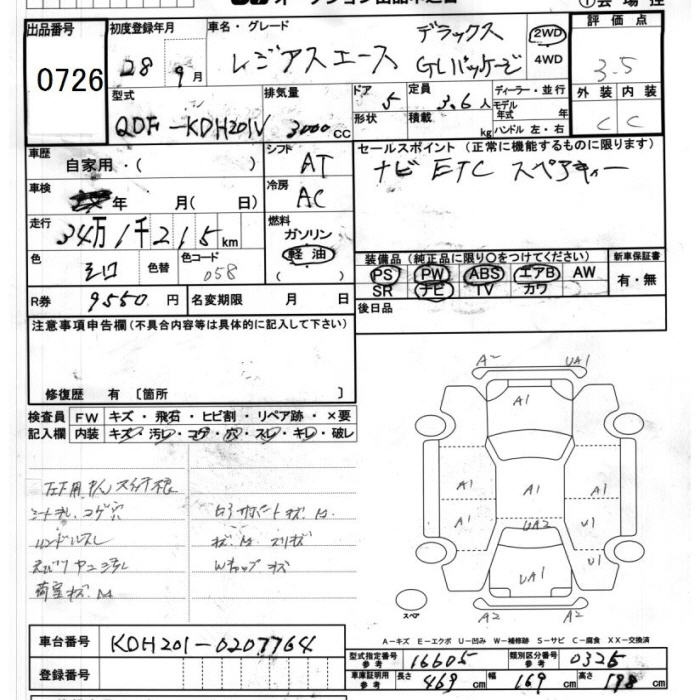 出品番号 0726
初度登録年月 28 9月
車名・グレード レジアスエース デラックス GLパッケージ
2WD 4WD
評価点 3.5
外装 内装
C C
型式 QDF-KDH201V
排気量 3000cc
ドア 5 形状
定員 3.6人 積載 kg
ディーラー・並行
モデル年式 年
ハンドル 左・右
車歴 自家用・( )
シフト AT
セールスポイント(正常に機能するものに限ります)
ナビ ETC スペアキー
車検 年 月( 日)
冷房 AC
走行 34万1千215km
燃料 ガソリン 軽油
色 シロ 色替 色コード 058
装備品(純正品に限り○をつけてください)
PS PW ABS エアB AW
SR ナビ TV カワ
新車保証書 有・無
R券 9550円 名変期限 月 日
後日品
注意事項申告欄(不具合内容等は具体的に記入して下さい)
修復歴 有〔箇所 〕
検査員記入欄
FW キズ・飛石・ヒビ割・リペア跡・×要
内装 キズ・汚レ・コゲ・穴・スレ・キレ・破レ
A2 UA1
A1
A1 A1 A1
A1 U1
UA2
UA1 U1
A2 A2
スペア
A-キズ E-エクボ U-凹み W-補修跡 S-サビ C-腐食 XX-交換済
車台番号 KDH201-0207764
登録番号
型式指定番号 参考 16605 類別区分番号 参考 0325
車庫証明用 参考 長さ 469cm 幅 169cm 高さ 198cm